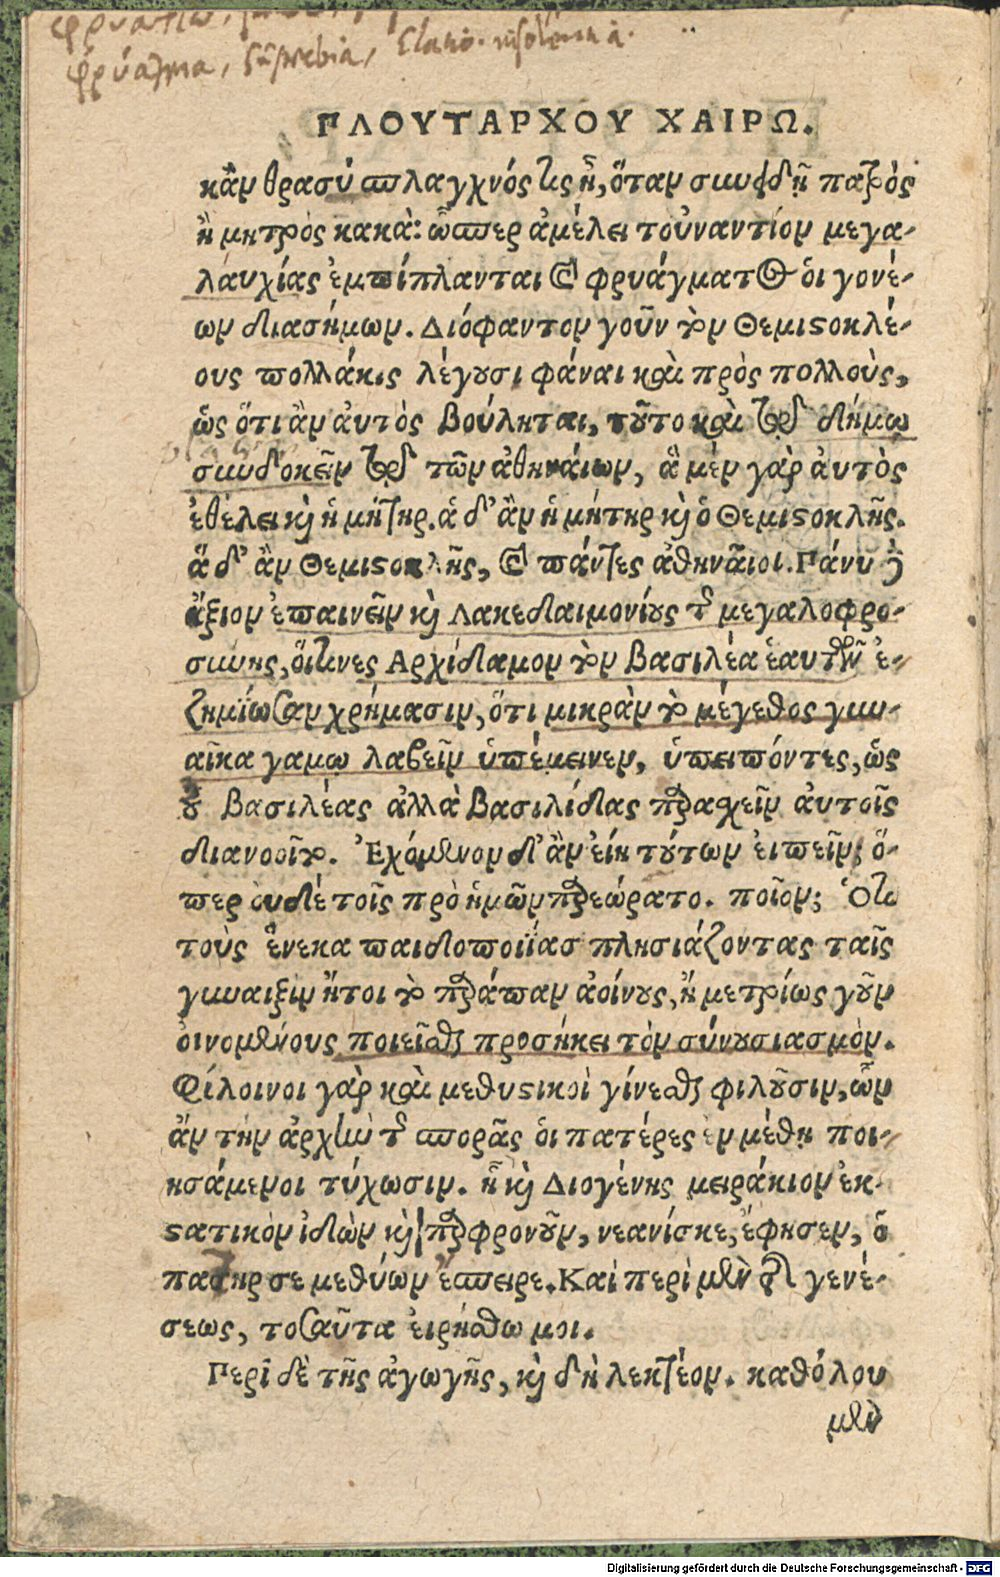 φρύαγμα, superbia, elatio.
ΠΛΟΥΤΑΡΧΟΥ ΧΑΙΡΩ.
κἂν θρασύσπλαγχνός τις ᾖ, ὅταν συνειδῇ πατρὸς
ἢ μητρὸς κακὰ: ὥσπερ ἀμέλει τοὐναντίον μεγα-
λαυχίας ἐμπίπλανται καὶ φρυάγματος ὁι γονέ-
ων διασήμων. Διόφαντον γοῦν τὸν Θεμιστοκλέ-
ους πολλάκις λέγουσι φάναι καὶ πρὸς πολλοὺς,
ὡς ὅτι ἂν ἀυτὸς βούληται, τοῦτο καὶ τῷ δήμῳ
συνδοκεῖν τῷ τῶν ἀθηναίων, ἃ μὲν γὰρ ἀυτὸς
ἐθέλει καὶ ἡ μήτηρ. ἁ δ' ἂν ἡ μήτηρ καὶ ὁ Θεμιστοκλῆς.
ἅ δ' ἂν Θεμιστοκλῆς, καὶ πάντες ἀθηναῖοι. Πάνυ δὲ
ἄξιον ἐπαινεῖν καὶ Λακεδαιμονίους τῆς μεγαλοφρο-
σύνης, ὅιτινες Αρχίδαμον τὸν βασιλέα ἑαυτῶν ἐ-
ζημίωσαν χρήμασιν, ὅτι μικρὰν τὸ μέγεθος γυν-
αῖκα γαμῳ λαβεῖν ὑπέμεινεν, ὑπειπόντες, ὡς
οὐ βασιλέας ἀλλὰ βασιλίδας παρασχεῖν ἀυτοῖς
διανοοῖτο. Ἐχόμενον δ' ἂν ἐίη τούτων ἐιπεῖν; ὅ-
περ ὀυδὲ τοῖς πρὸ ἡμῶν παρεώρατο. ποῖον; Ὅτι
τοὺς ἕνεκα παιδοποιΐας πλησιάζοντας ταῖς
γυναιξὶν ἤτοι τὸ παράπαν ἀοίνους, ἢ μετρίως γοῦν
ὀινομένους ποιεῖσθαι προσήκει τὸν σύνουσιασμὸν.
Φίλοινοι γὰρ καὶ μεθυστικοὶ γίνεσθαι φιλοῦσιν, ὧν
ἂν τὴν ἀρχὴν τῆς σπορᾶς ὁι πατέρες ἐν μέθῃ ποι-
ησάμενοι τύχωσιν. ᾗ καὶ Διογένης μειράκιον ἐκ-
στατικὸν ἰδὼν καὶ παραφρονοῦν, νεανίσκε, ἔφησεν, ὁ
πατήρ σε μεθύων ἔσπειρε. Καὶ περὶ μὲν τῆς γενέ-
σεως, τοσαῦτα ἐιρήσθω μοι.
Περὶ δὲ τῆς ἀγωγῆς, καὶ δὴ λεκτέον. καθόλου
μὲν
Digitalisierung gefördert durch die Deutsche Forschungsgemeinschaft - DFG